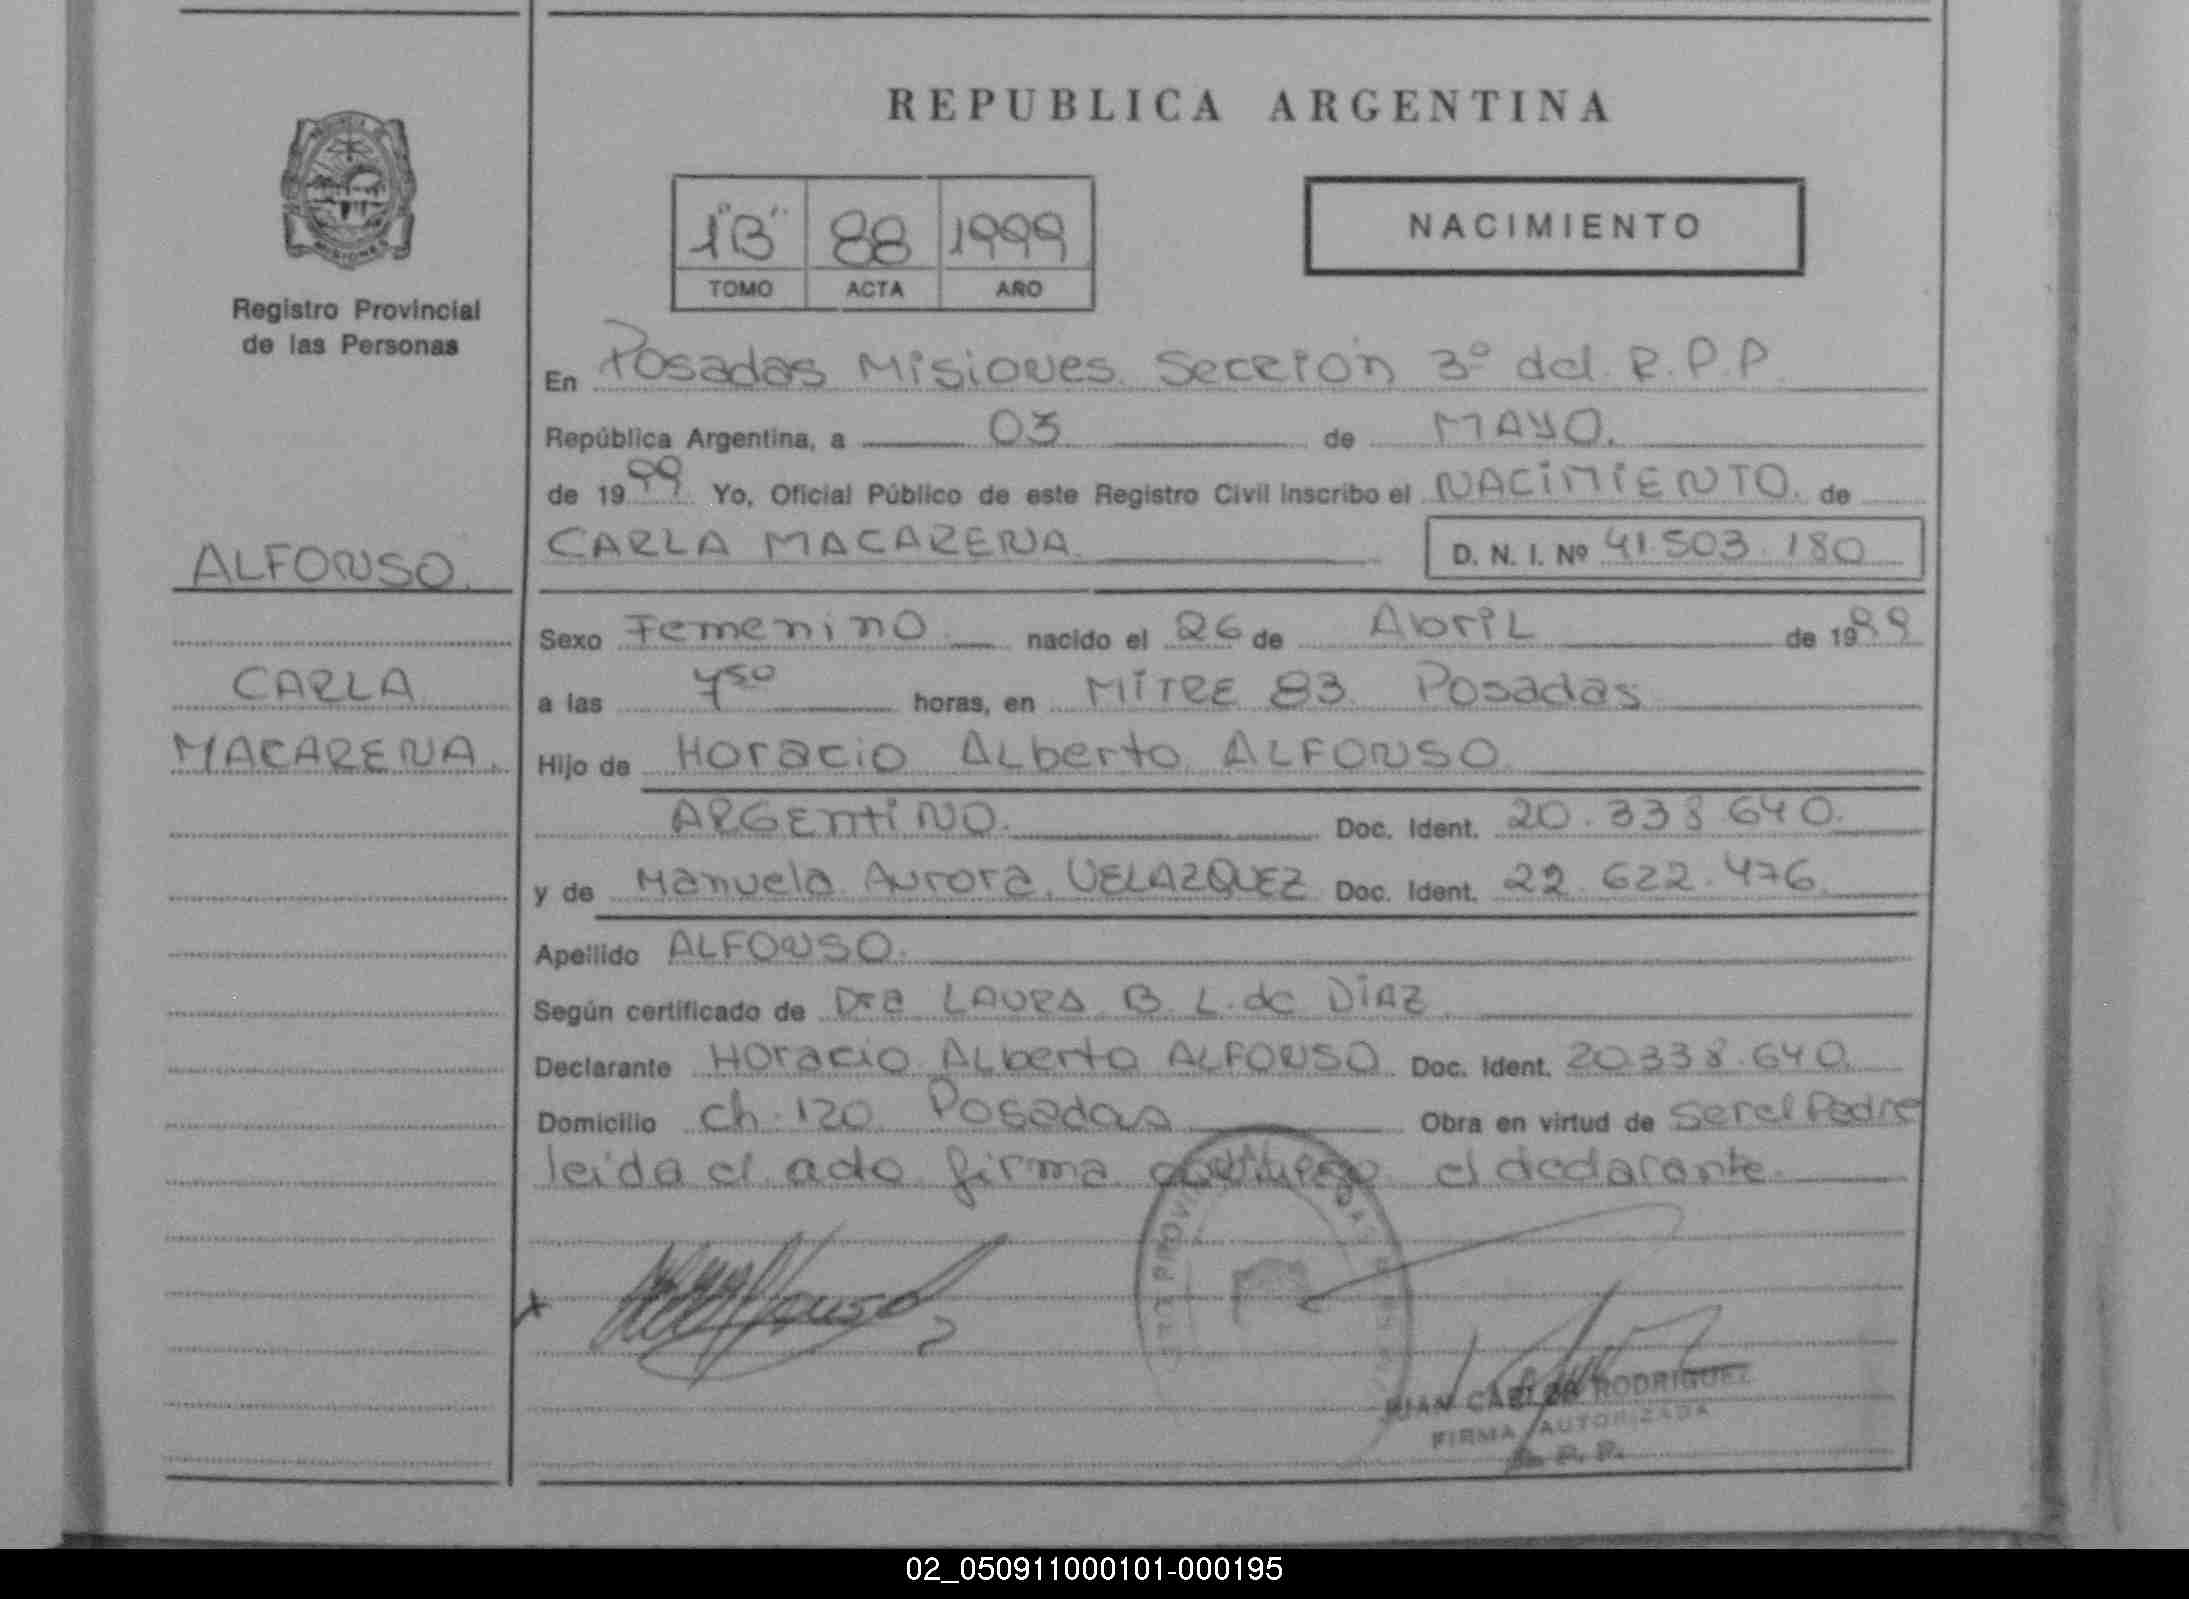 REPUBLICA ARGENTINA
1"B" 88 1999
TOMO ACTA AÑO
NACIMIENTO
MISIONES
Registro Provincial
de las Personas
ALFONSO
CARLA
MACARENA.
En Posadas Misiones Sección 3º del R.P.P.
República Argentina, a 03 de MAYO.
de 1999 Yo, Oficial Público de este Registro Civil inscribo el NACIMIENTO. de
CARLA MACARENA D. N. I. Nº 41.503.180
Sexo Femenino nacido el 26 de Abril de 1999
a las 7 50 horas, en MITRE 83 Posadas
Hijo de Horacio Alberto ALFONSO
ARGENTINO. Doc. Ident. 20.338.640.
y de Manuela Aurora VELAZQUEZ Doc. Ident. 22.622.476
Apellido ALFONSO.
Según certificado de Dra LAURA B. L. de DIAZ
Declarante Horacio Alberto ALFONSO Doc. Ident. 20.338.640.
Domicilio ch. 120 Posadas Obra en virtud de ser el Padre
leida el acta firma el declarante.
JUAN CARLOS RODRIGUEZ
FIRMA AUTORIZADA
R. P. P.
02_050911000101-000195